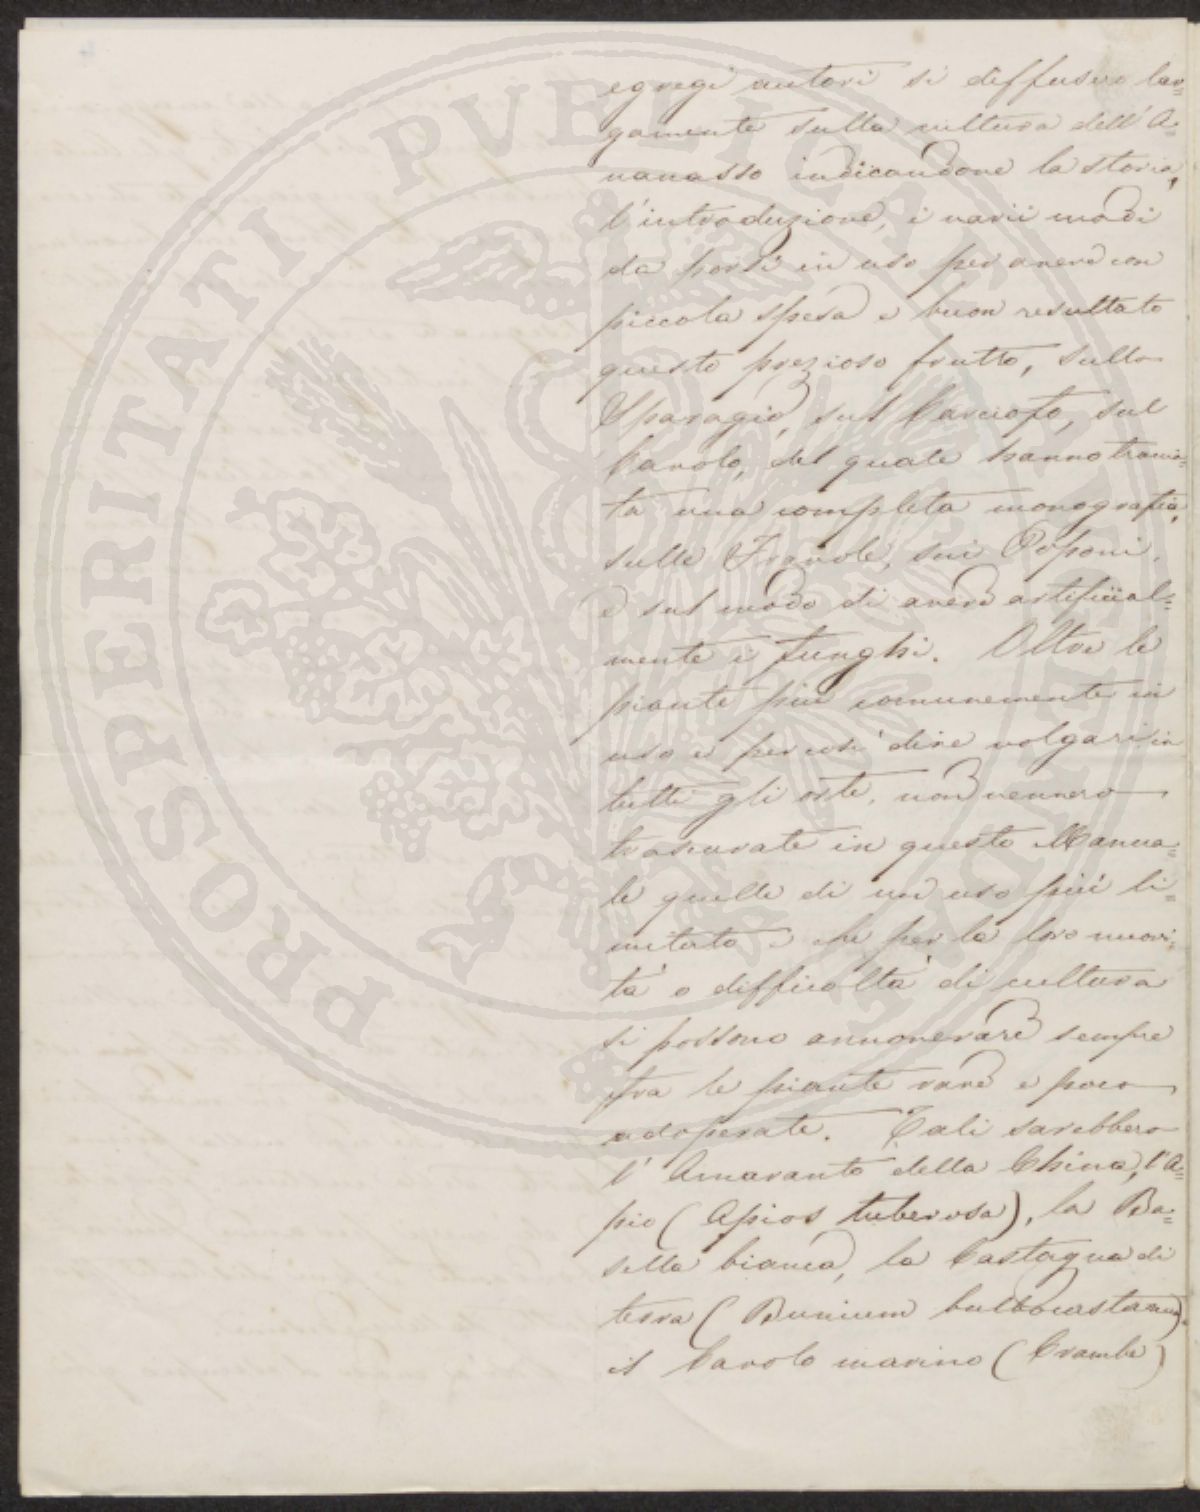 egregi autori si diffusero lar=
gamente sulla cultura dell'A=
nanasso indicandone la storia,
l'introduzione, i varii modi
da porsi in uso per avere con
piccola spesa e buon resultato
questo prezioso frutto, sullo
Sparagio, sul Carciofo, sul
Cavolo, del quale hanno
ta una completa monografia,
sulle Fragole, sui Poponi,
e sul modo di avere artificial=
mente i funghi. Oltre le
piante più comunemente in
uso e per così dire volgari in
tutti gli orti, non vennero
trascurate in questo Manua=
le quelle di un uso più li=
mitato e che per la loro novi=
tà o difficoltà di cultura
si possono annoverare sempre
fra le piante rare e poco
adoperate. Tali sarebbero
l'Amaranto della China, l'A=
pio (Apios tuberosa), la Ba=
sella bianca, la Castagna di
terra (Bunium bulbocastanum),
il Cavolo marino (Crambe)
PROSPERITATI PVBLICAE AVGENDAE